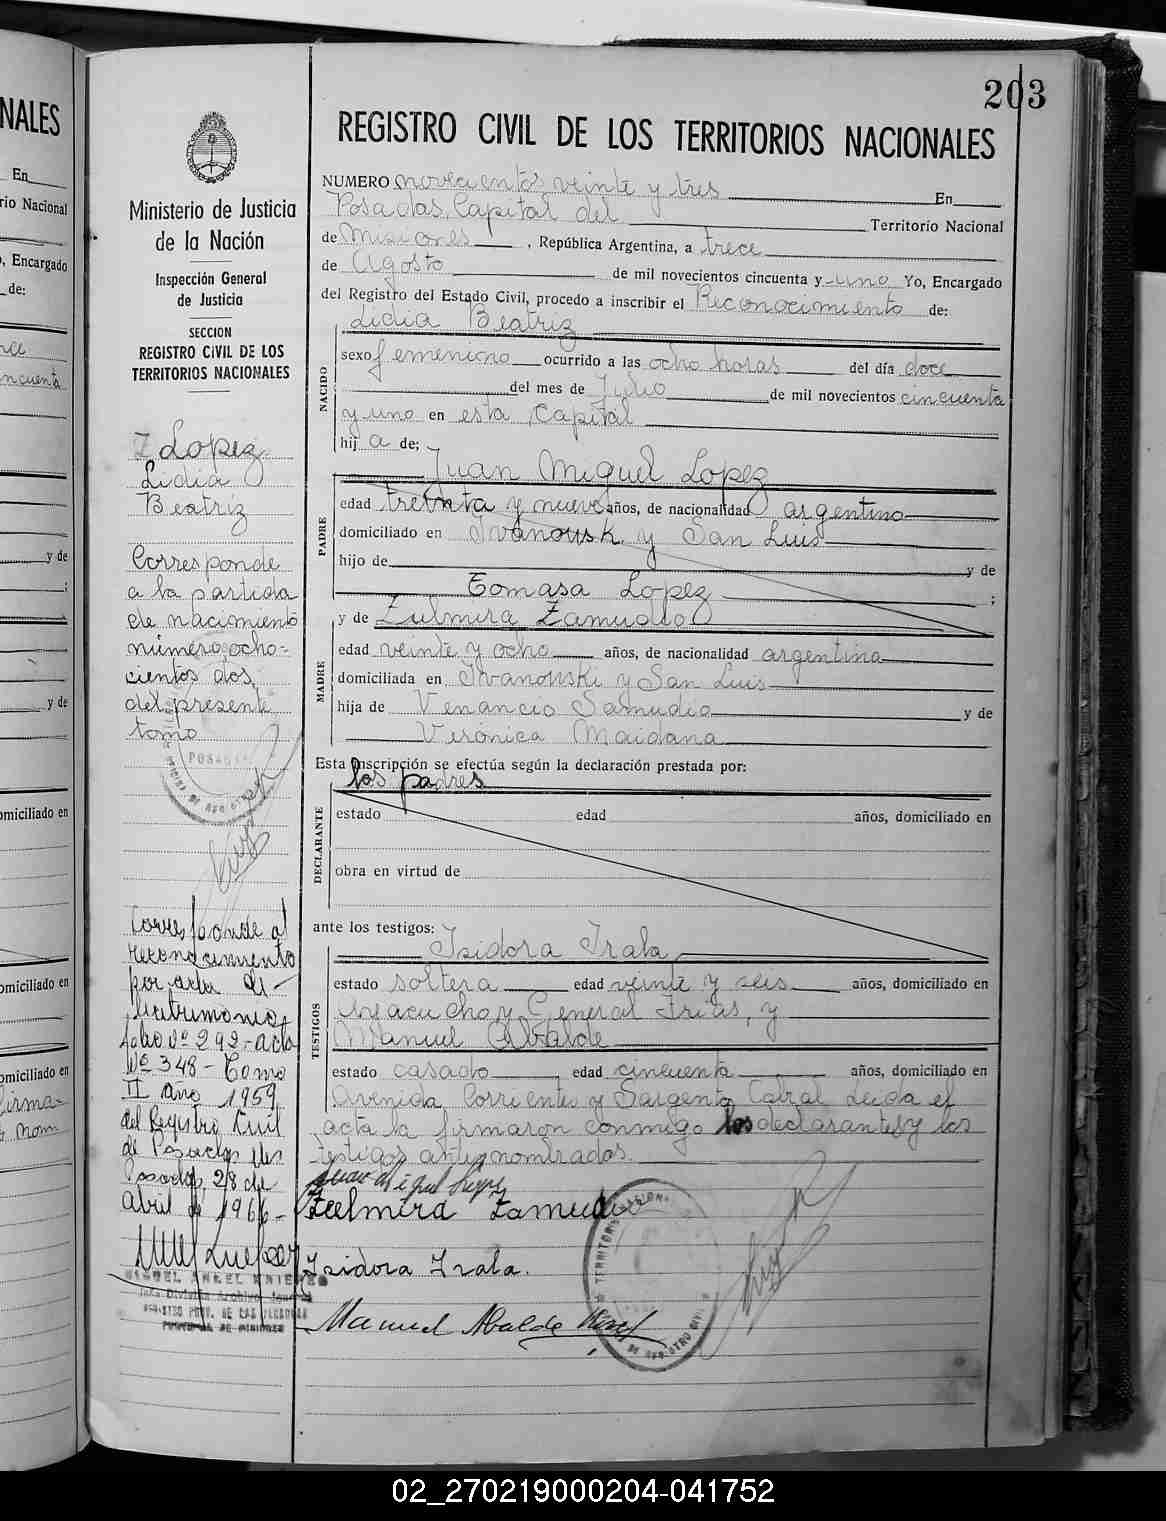 203
REGISTRO CIVIL DE LOS TERRITORIOS NACIONALES
NUMERO novecientos veinte y tres En
Posadas, Capital del Territorio Nacional
de Misiones, República Argentina, a trece
de Agosto de mil novecientos cincuenta y uno Yo, Encargado
del Registro del Estado Civil, procedo a inscribir el Reconocimiento de:
Lidia Beatriz
NACIDO
sexo femenino ocurrido a las ocho horas del día doce
del mes de Julio de mil novecientos cincuenta
y uno en esta Capital
hij a de:
Juan Miguel Lopez
PADRE
edad treinta y nueve años, de nacionalidad argentino
domiciliado en Ivanousk y San Luis
hijo de y de
Tomasa Lopez ;
y de Zulmira Zamudio
MADRE
edad veinte y ocho años, de nacionalidad argentina
domiciliada en Ivanouski y San Luis
hija de Venancio Samudio y de
Verónica Maidana
Esta inscripción se efectúa según la declaración prestada por:
los padres
DECLARANTE
estado edad años, domiciliado en
obra en virtud de
ante los testigos:
Isidora Irala
TESTIGOS
estado soltera edad veinte y seis años, domiciliado en
Ayacucho y General Frias, y
Manuel Abalde
estado casado edad cincuenta años, domiciliado en
Avenida Corrientes y Sargento Cabral Leida el
acta la firmaron conmigo los declarantes y los
testigos antenombrados.
Juan Miguel Lopez
Zulmira Zamudio
Isidora Irala.
Manuel Abalde
Ministerio de Justicia
de la Nación
Inspección General
de Justicia
SECCION
REGISTRO CIVIL DE LOS
TERRITORIOS NACIONALES
Lopez
Lidia
Beatriz
Corresponde
a la partida
de nacimiento
número ocho-
cientos dos
del presente
tomo
POSADAS
Corresponde al
reconocimiento
por acta de
Matrimonio,
folio nº 292.- acta
Nº 348 - Tomo
II Año 1959
del Registro Civil
de Posadas
Posadas, 28 de
Abril de 1966-
NALES
En
rio Nacional
, Encargado
de:
ncuenta
y de
;
y de
omiciliado en
omiciliado en
omiciliado en
firma-
nom
02_270219000204-041752